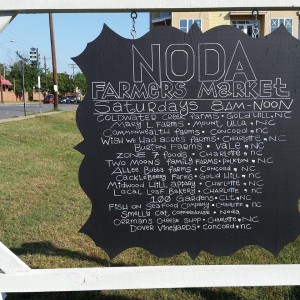 NODA
FARMERS MARKET
SATURDAYS 8AM-NOON
COLDWATER CREEK FARMS • GOLD HILL, NC
MARY L FARMS • MOUNT ULLA • NC
COMMONWEALTH FARMS • CONCORD • NC
WISH WE HAD ACRES FARMS • CHARLOTTE • NC
BURTON FARMS • VALE • NC
ZONE 7 FOODS • CHARLOTTE • NC
TWO MOONS FAMILY FARMS • NC
ALLEE BUBBA FARMS • CONCORD • NC
CACKLEBERRY FARMS • GOLD HILL • NC
MIDWOOD HILL APIARY • CHARLOTTE • NC
LOCAL LOAF BAKERY • CHARLOTTE • NC
100 GARDENS • CLT • NC
FISH ON SEAFOOD COMPANY • CHARLOTTE • NC
SMELLY CAT COFFEEHOUSE • NODA
ORRMANS CHEESE SHOP • CHARLOTTE • NC
DOVER VINEYARDS • CONCORD • NC